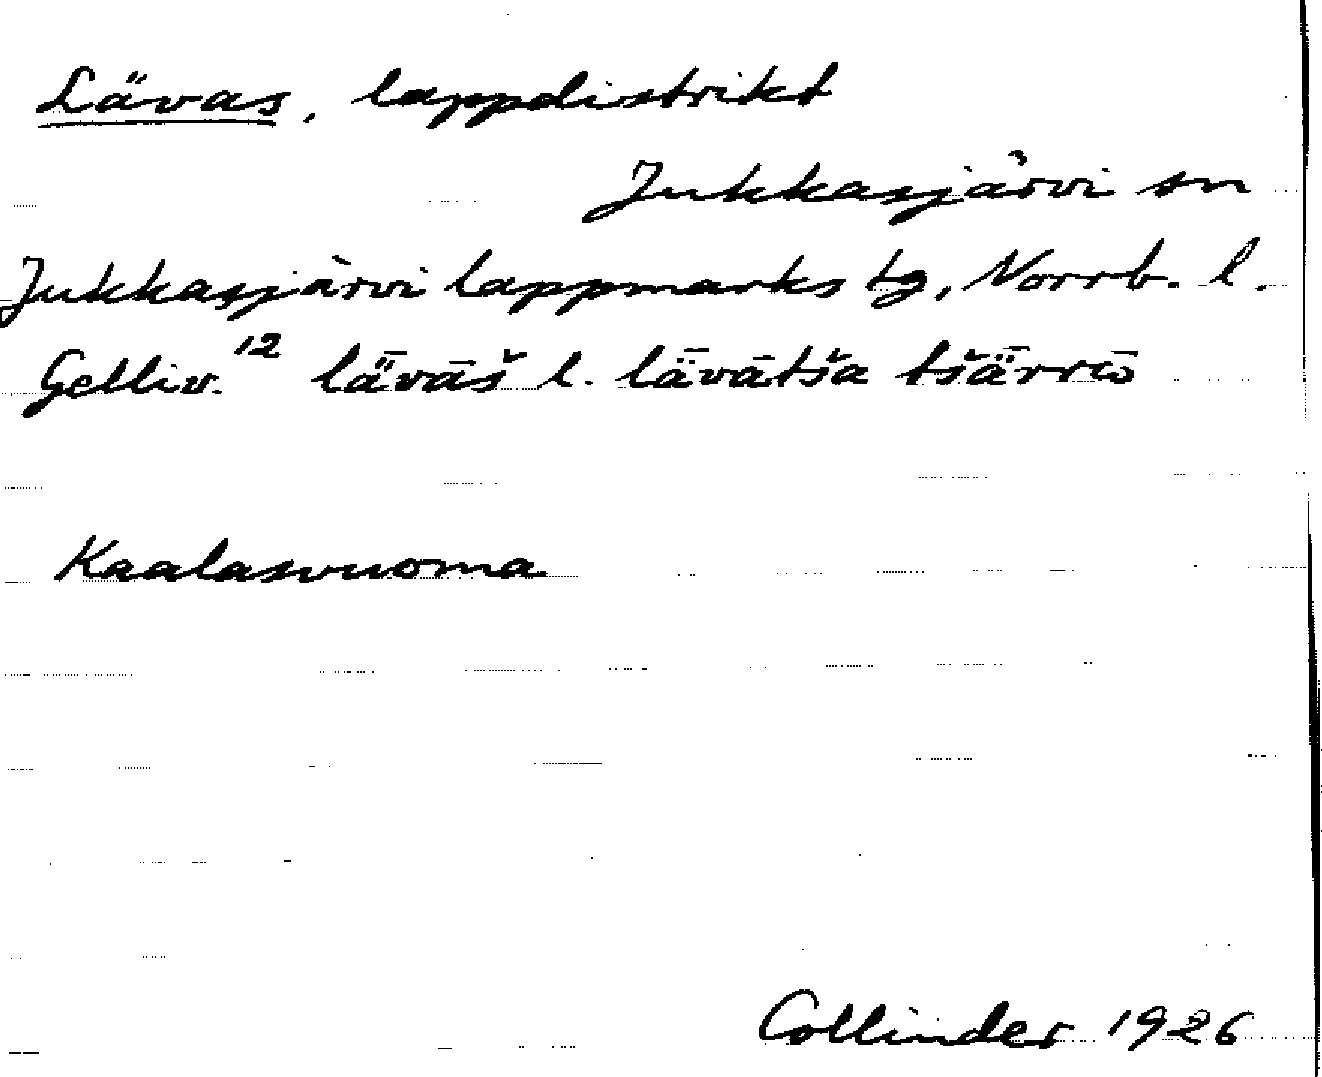 Lävas, lappdistrikt
Jukkasjärvi sn
Jukkasjärvi lappmarks tg, Norrb. l.
Gelliv.¹² lǟvāš l. lǟvātša tšǟrrō
Kaalasvuoma
Collinder 1926